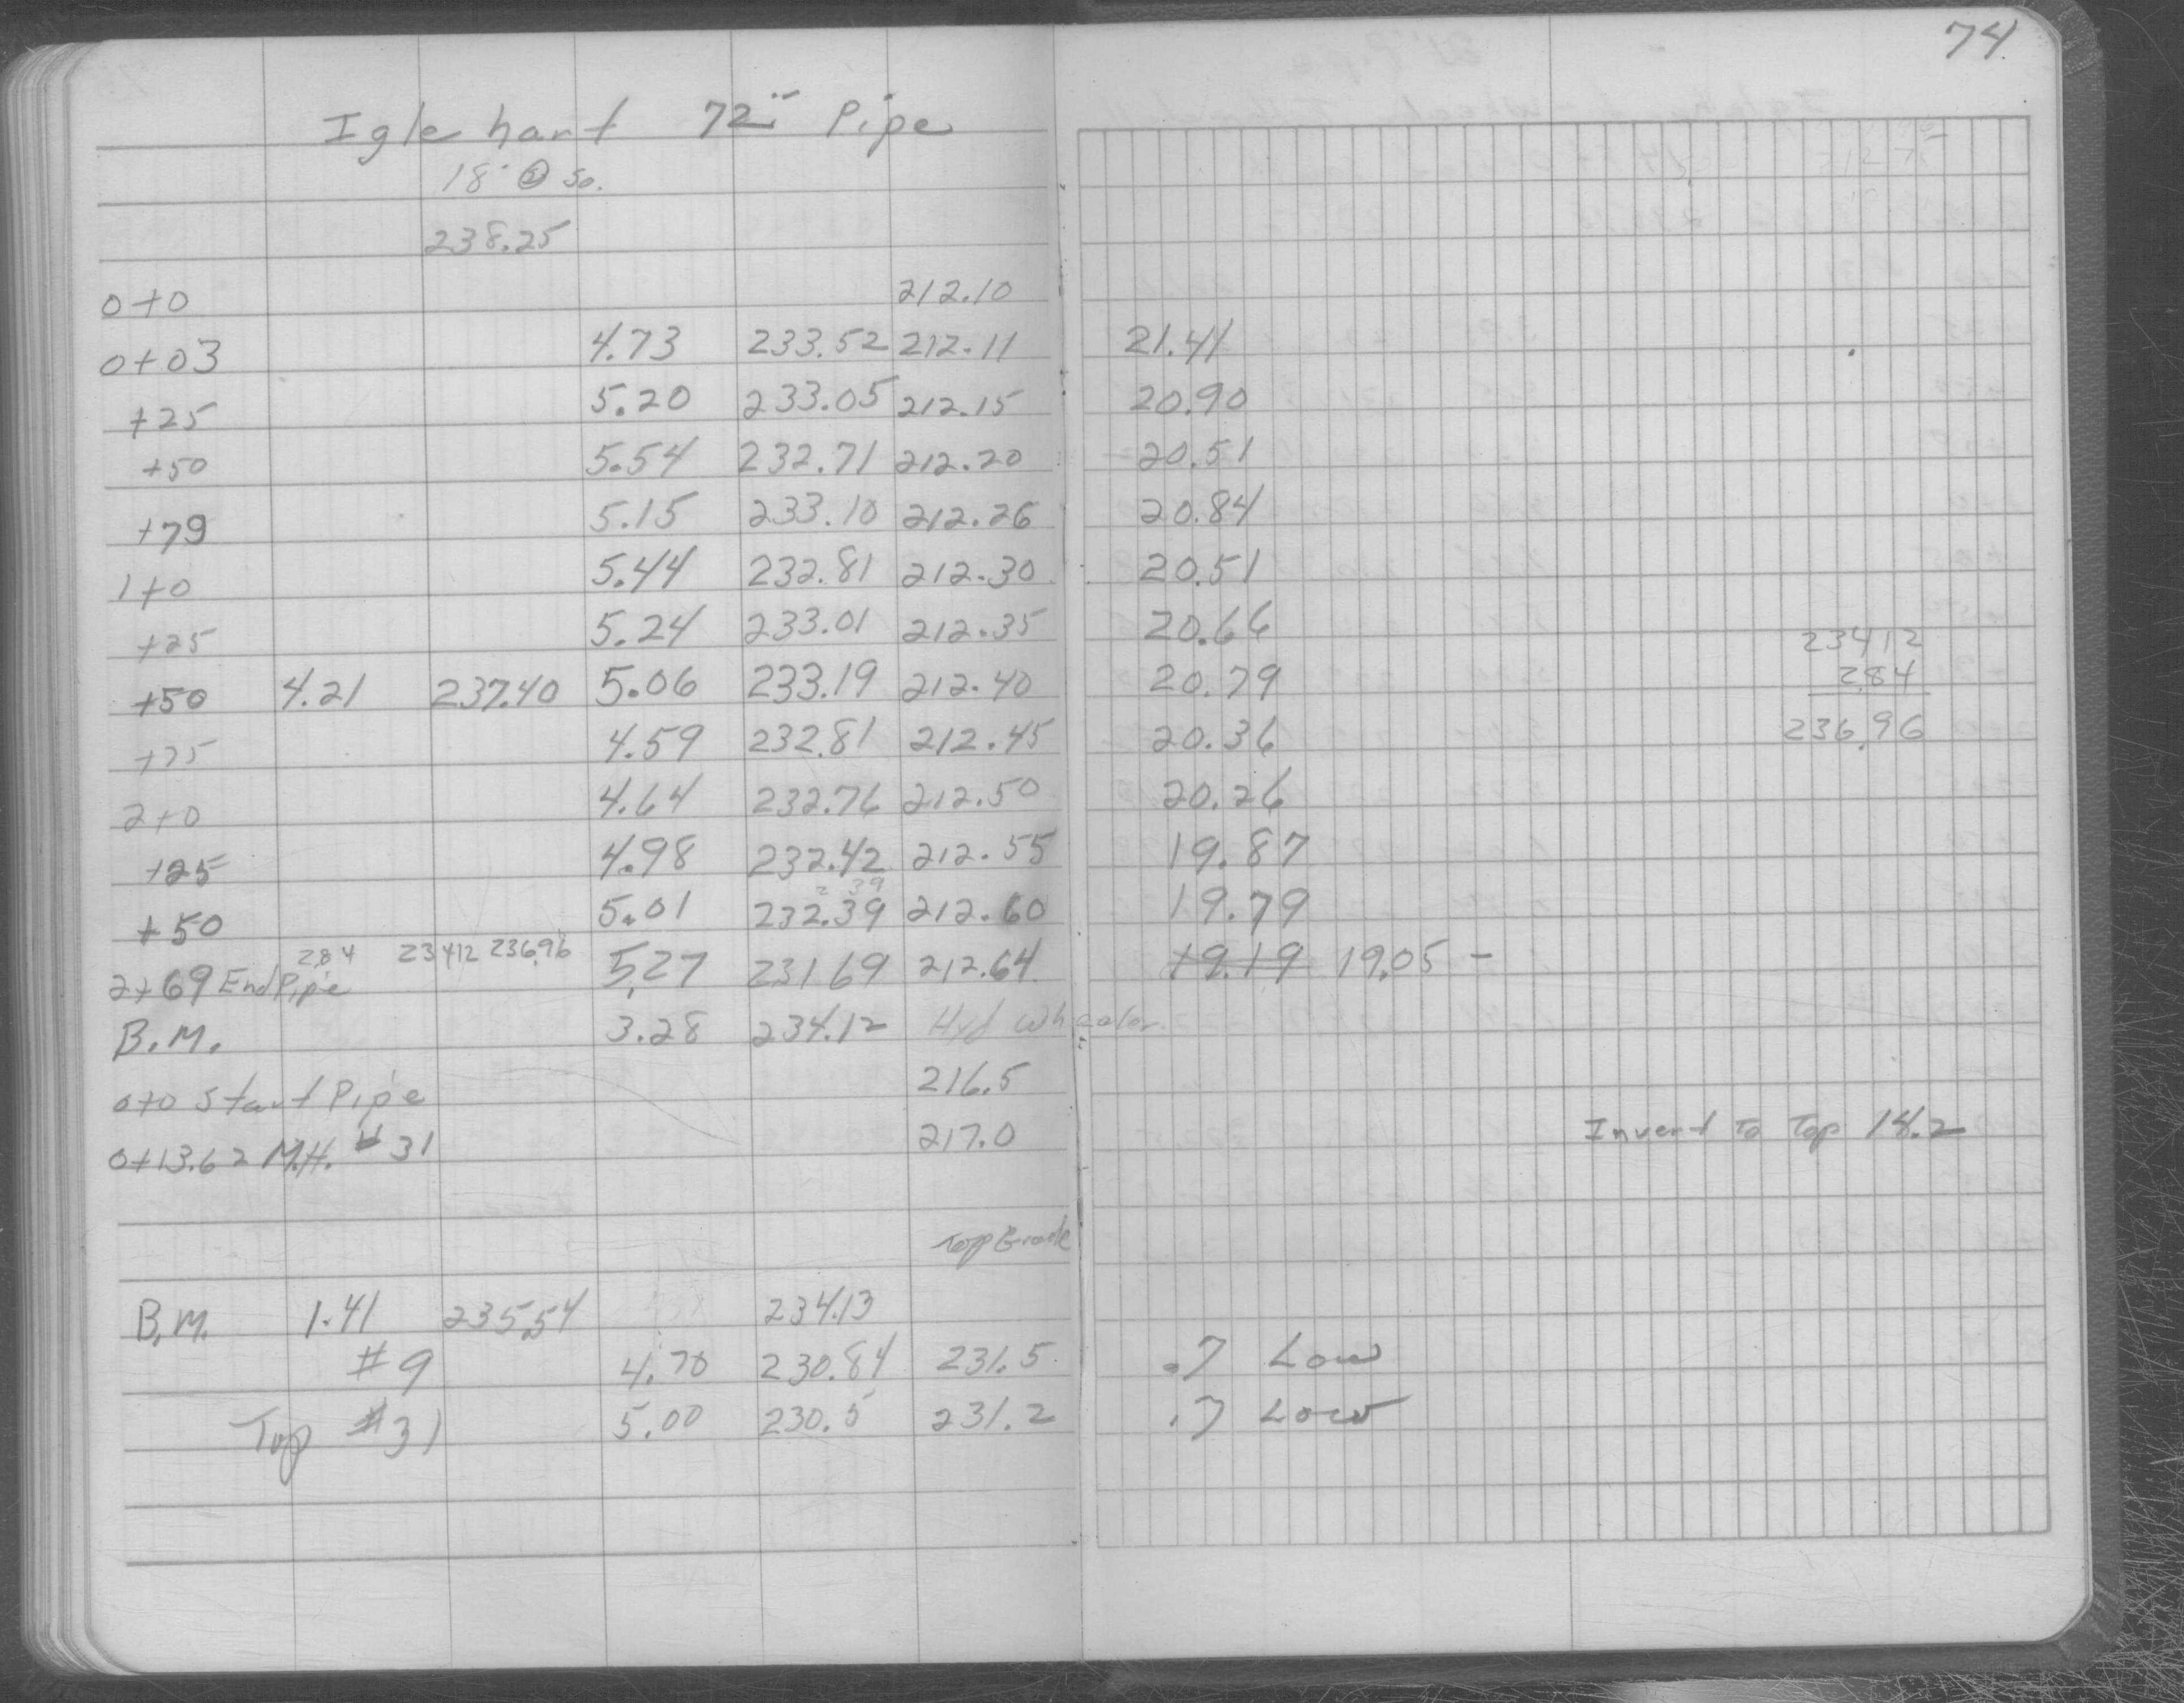 74
Iglehart 72" Pipe
18' @ So.
238.25
0+0 212.10
0+03 4.73 233.52 212.11 21.41
+25 5.20 233.05 212.15 20.90
+50 5.54 232.71 212.20 20.51
+79 5.15 233.10 212.26 20.84
1+0 5.44 232.81 212.30 20.51
+25 5.24 233.01 212.35 20.66
+50 4.21 237.40 5.06 233.19 212.40 20.79
+75 4.59 232.81 212.45 20.36
2+0 4.64 232.76 212.50 20.26
+25 4.98 232.42 212.55 19.87
2 39
+50 5.01 232.39 212.60 19.79
2.84 234.12 236.96
2+69 End Pipe 5.27 231.69 212.64 19.19 19.05 -
B.M. 3.28 234.12 Hyd Wheeler
0+0 Start Pipe 216.5
0+13.62 M.H. #31 217.0
Top Grade
B.M. 1.41 235.54 234.13
#9 4.70 230.84 231.5 .7 Low
Top #31 5.00 230.5 231.2 .7 Low
234.12
2.84
236.96
Invert To Top 14.2